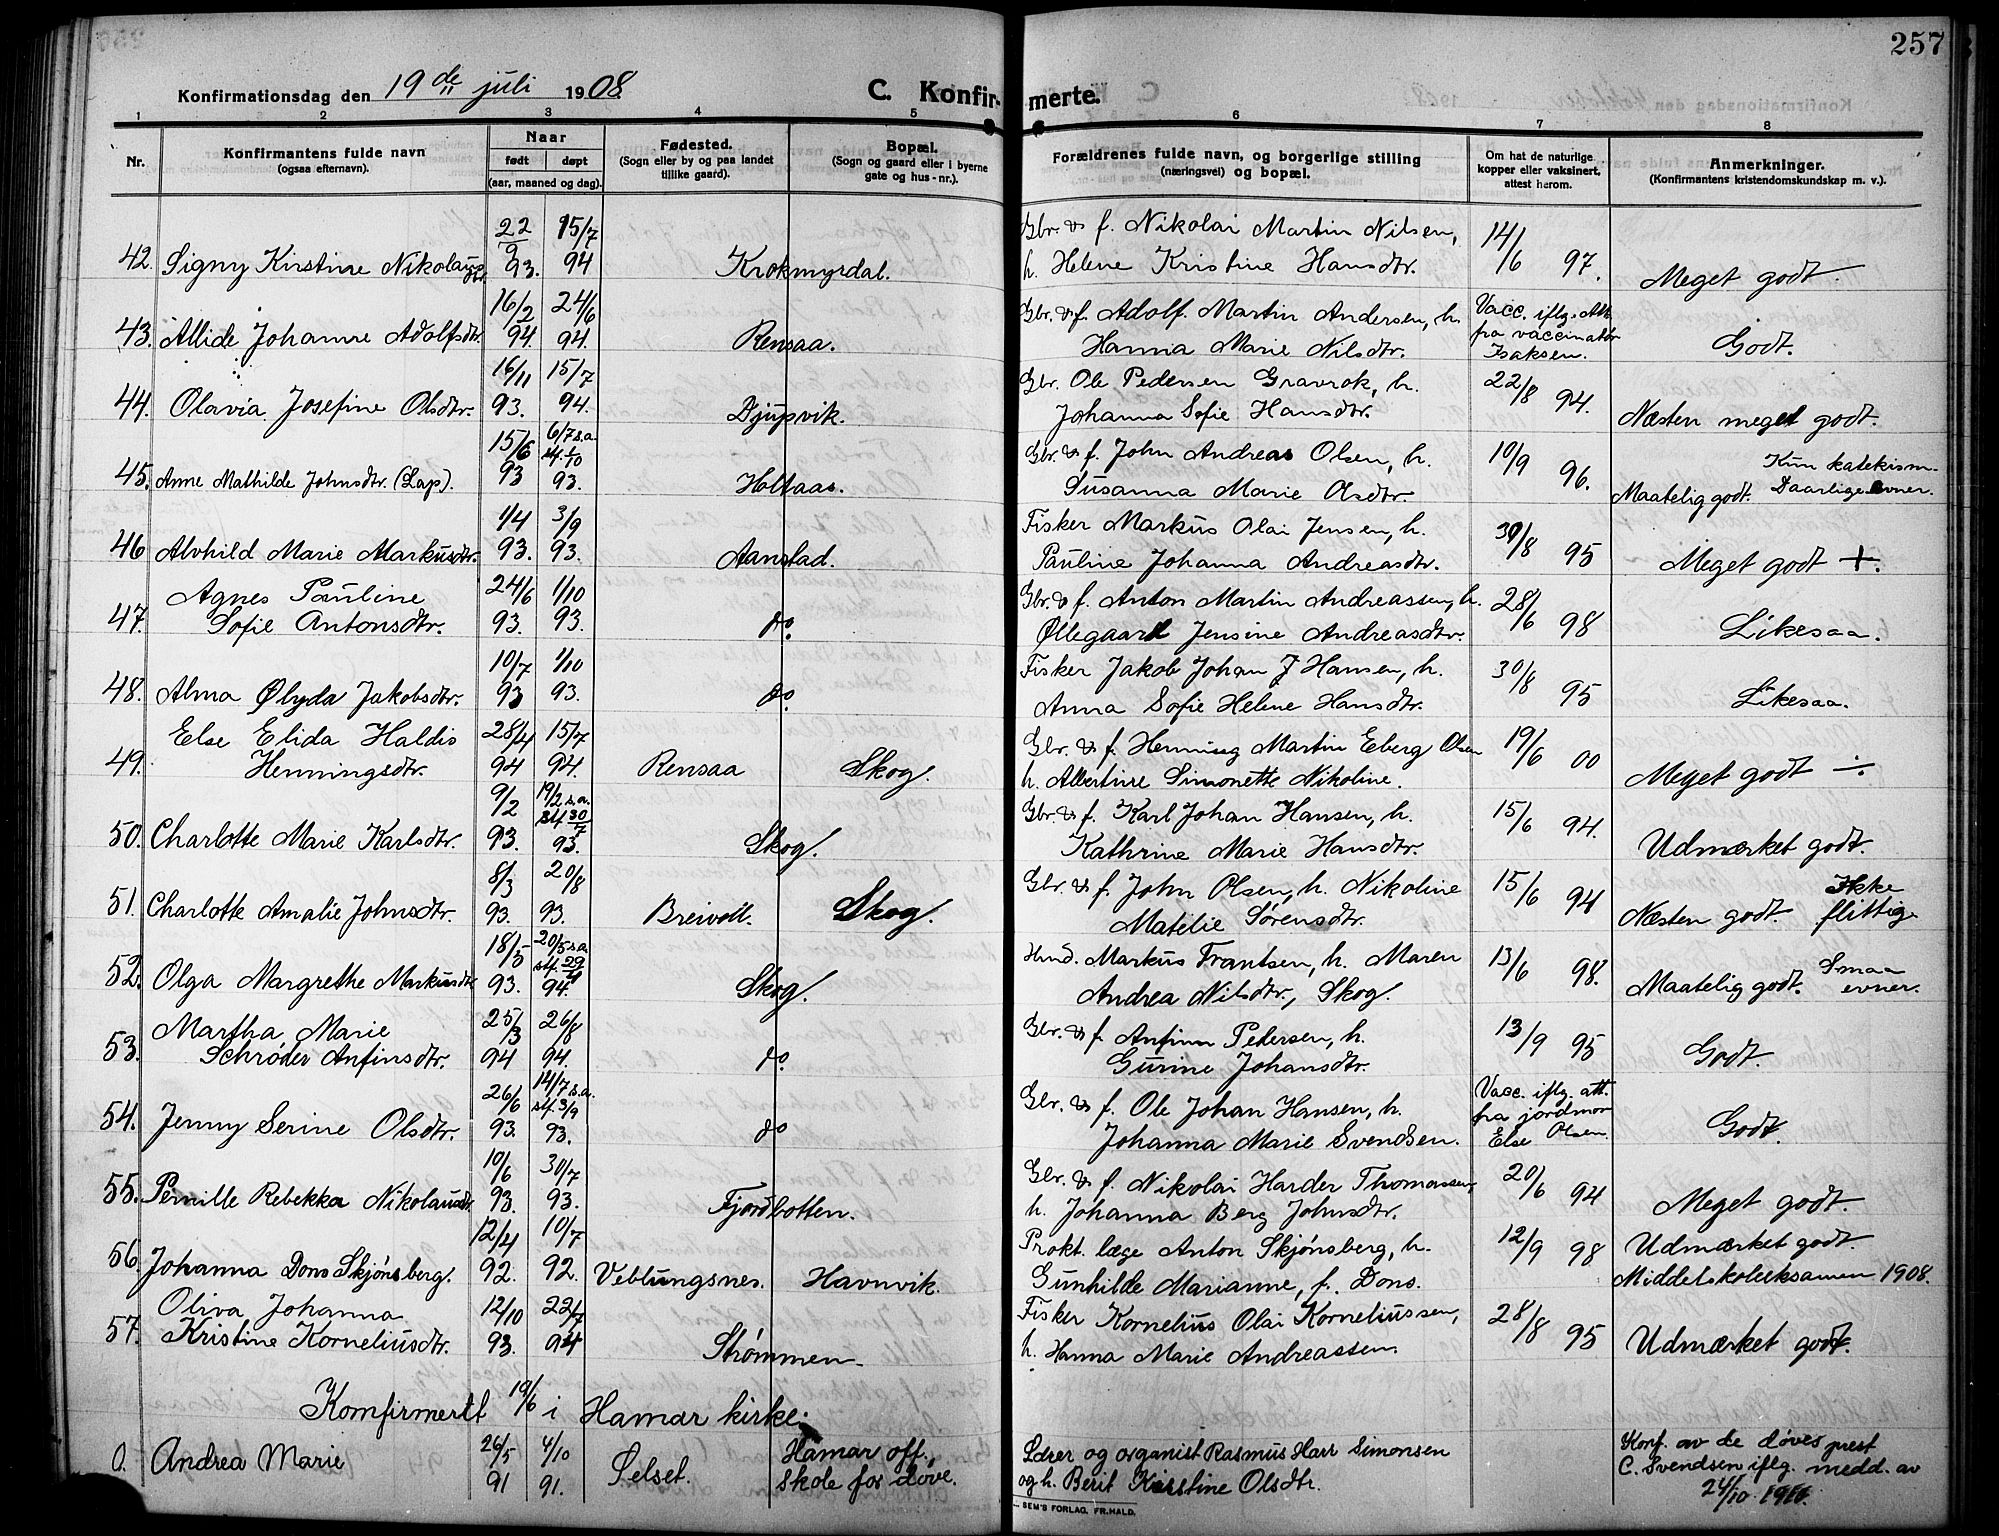 257
Konfirmationsdag den 19de juli 1908.
C. Konfirmerte.
1 2 3 4 5 6 7 8
Nr.
Konfirmantens fulde navn
(ogsaa efternavn).
Naar
født døpt
(aar, maaned og dag).
Fødested.
(Sogn eller by og paa landet
tillike gaard).
Bopæl.
(Sogn og gaard eller i byerne
gate og hus-nr.).
Forældrenes fulde navn, og borgerlige stilling
(næringsvei) og bopæl.
Om hat de naturlige
kopper eller vaksinert,
attest herom.
Anmerkninger.
(Konfirmantens kristendomskundskap m. v.).
22/9 15/7 Gbr. & f. Nikolai Martin Nilsen, 14/6
42. Signy Kirstine Nikolausdtr. 93. 94 Krokmyrdal. h. Helene Kristine Hansdtr. 97. Meget godt.
16/2 24/6 Gbr. & f. Adolf Martin Andersen, h. Vacc. iflg. att.
43. Allide Johanne Adolfsdtr. 94. 94. Rensaa. Hanna Marie Nilsdtr. fra vaccinatør Isaksen. Godt.
16/11 15/7 Gbr. Ole Pedersen Gravrok, h. 22/8
44. Olavia Josefine Olsdtr. 93. 94. Djupvik. Johanna Sofie Hansdtr. 94. Næsten meget godt.
15/6 6/7 s.a. stf. 1/10 Gbr. & f. John Andreas Olsen, h. 10/9 Kun katekism.
45. Anne Mathilde Johnsdtr. (Lap). 93 93. Holtaas. Susanna Marie Olsdtr. 96. Maatelig godt. Daarlige evner.
1/4 3/9 Fisker Markus Olai Jensen, h. 30/8
46 Alvhild Marie Markusdtr. 93. 93. Aanstad. Pauline Johanna Andreasdtr. 95 Meget godt +.
Agnes Pauline 24/6 1/10 Gbr. & f. Anton Martin Andreassen, h. 28/6
47. Sofie Antonsdtr. 93. 93. do. Øllegaard Jensine Andreasdtr. 98 Likesaa.
10/7 1/10 Fisker Jakob Johan J Hansen, h. 30/8
48. Alma Ølyda Jakobsdtr. 93 93. do Anna Sofie Helene Hansdtr. 95 Likesaa.
Else Elida Haldis 28/4 15/7 Gbr. & f. Henning Martin Eberg Olsen 19/6
49. Henningsdtr. 94 94. Rensaa Skog. h. Albertine Simonette Nikoline. 00 Meget godt ÷
9/2 19/2 s.a. stf. 30/7 Gbr. & f. Karl Johan Hansen, h. 15/6
50. Charlotte Marie Karlsdtr. 93. 93. Skog. Kathrine Marie Hansdtr. 94. Udmærket godt.
8/3 20/8 Gbr. & f. John Olsen, h. Nikoline 15/6 Ikke
51. Charlotte Amalie Johnsdtr. 93. 93. Breivoll. Skog. Matelie Sørensdtr. 94 Næsten godt. flittig.
18/5 20/5 s.a. stf. 29/4 Hmd. Markus Frantsen, h. Maren 13/6 Smaa
52. Olga Margrethe Markusdtr 93. 94. Skog. Andrea Nilsdtr., Skog. 98. Maatelig godt. evner.
Martha Marie 25/3 26/8 Gbr. & f. Anfinn Petersen, h. 13/9
53. Schrøder Anfinsdtr. 94 94. do Gurine Johansdtr. 95 Godt.
26/6 14/7 s.a. stf. 3/9 Gbr. & f. Ole Johan Hansen, h. Vacc. iflg. att.
54. Jenny Serine Olsdtr. 93. 93. do Johanna Marie Svendsen. fra jordmor Else Olsen. Godt.
10/6 30/7 Gbr. & f. Nikolai Harder Thomassen, 20/6
55. Pernille Rebekka Nikolausdtr. 93. 93. Fjordbotten. h. Johanna Berg Johnsdtr. 94 Meget godt.
12/4 10/7 Prakt. læge Anton Skjønsberg, h. 12/9 Udmærket godt.
56. Johanna Dons Skjønsberg. 92. 92. Veblungsnes. Havnvik. Gunhilde Marianne, f. Dons. 98 Middelskoleeksamen 1908.
Oliva Johanna 12/10 22/7 Fisker Kornelius Olai Korneliussen, 28/8
57. Kristine Korneliusdtr. 93. 94 Strømmen. h. Hanna Marie Andreassen. 95 Udmærket godt.
Komfirmert 19/6 i Hamar kirke.
26/5 4/10 Hamar off. Lærer og organist Rasmus Harr Simonsen Konf. av de døves prest
0. Andrea Marie 91 91. Selset. Skole for døve. og h. Berit Kirstine Olsdtr. C. Svendsen iflg. medd. av
24/10 1910.
SEM'S FORLAG, FR.HALD.